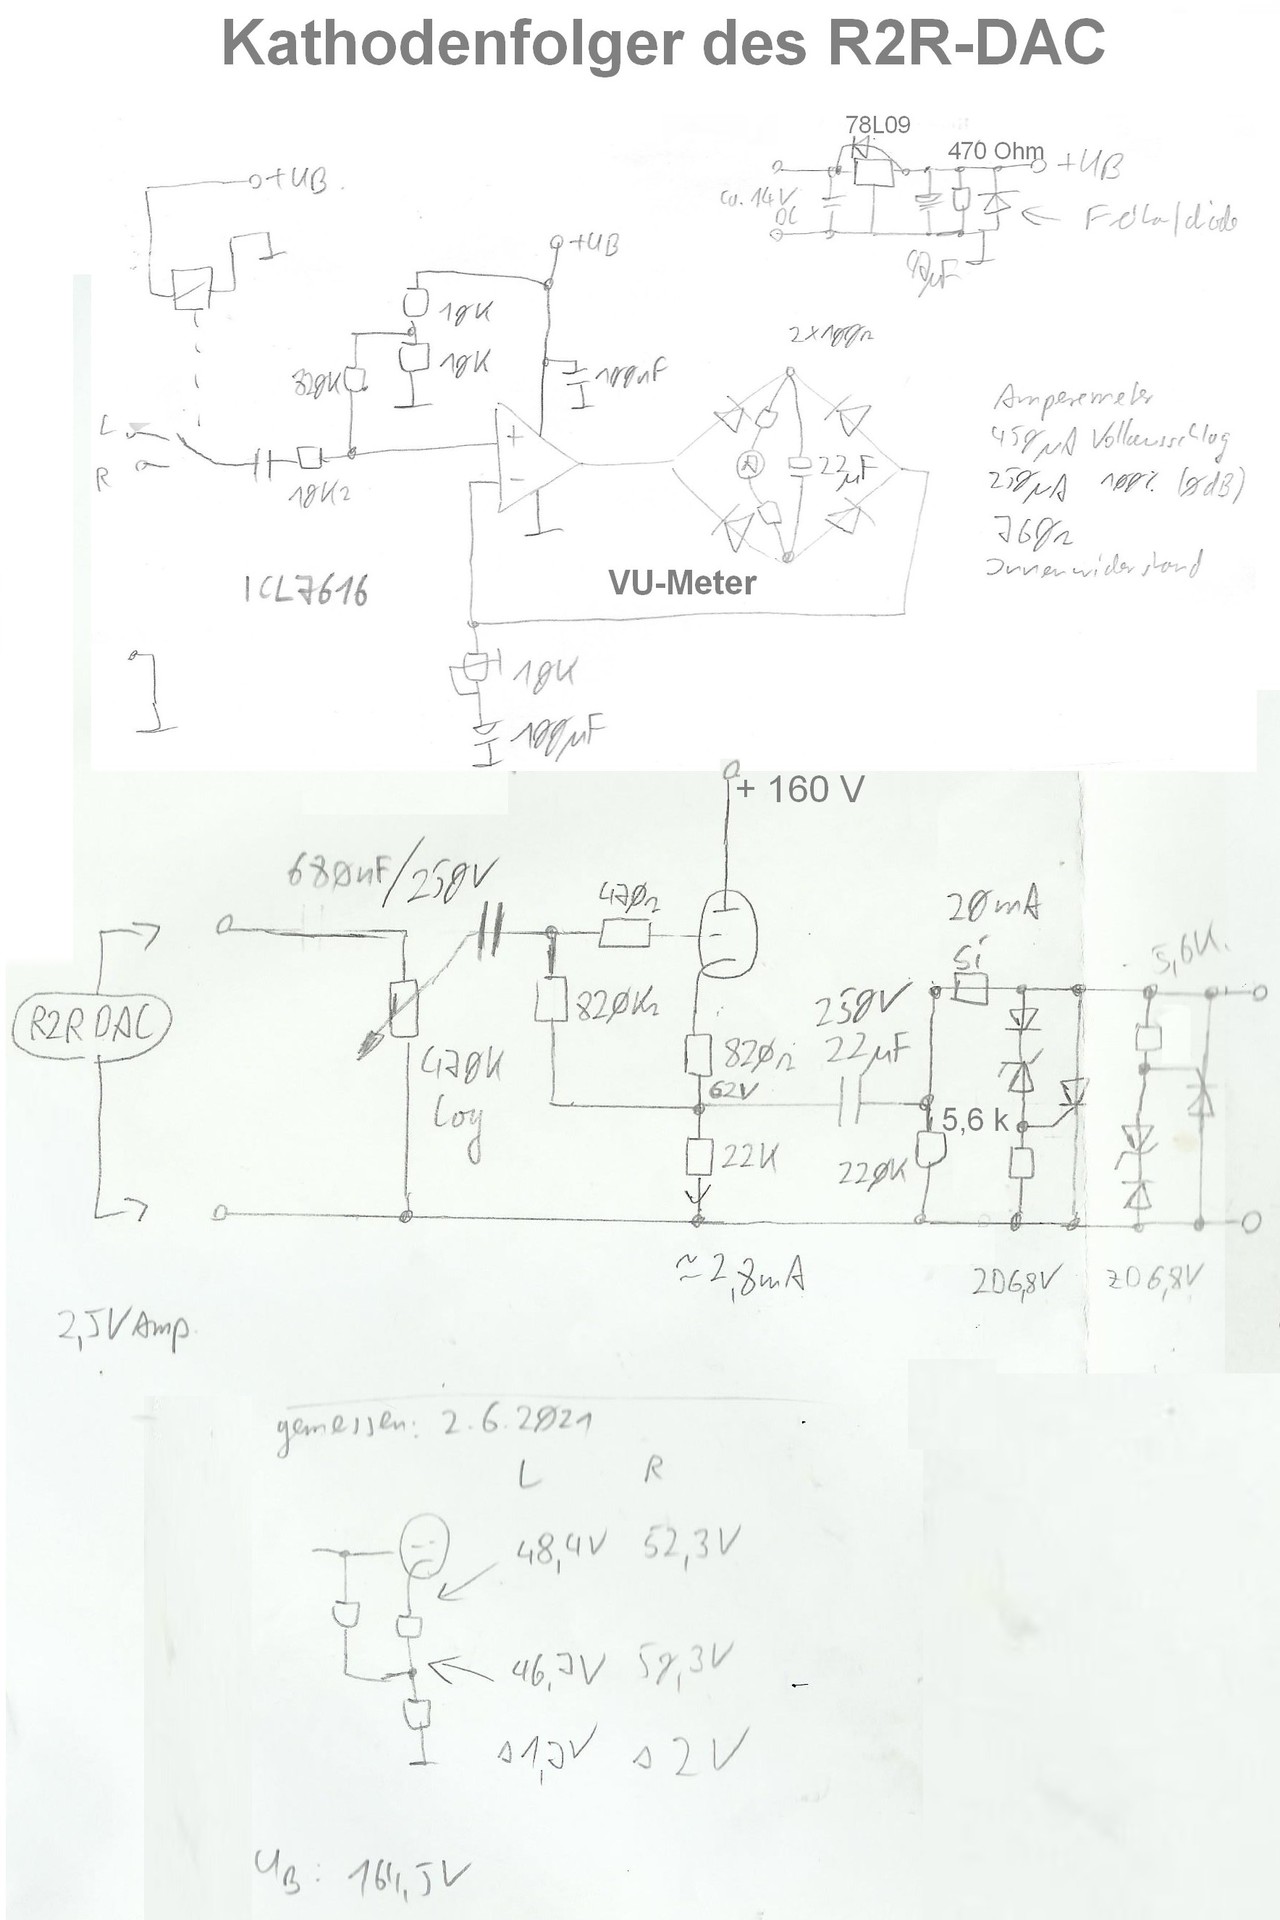 Kathodenfolger des R2R-DAC
78L09
470 Ohm
+UB
ca. 14V
DC
47µF
+UB
+UB
10K
10K
100nF
820K
L
R
10K2
+
-
2x100Ω
A
22µF
VU-Meter
Amperemeter
450µA Vollausschlag
250µA 100% (0dB)
760Ω
Innenwiderstand
ICL7616
10K
100µF
+ 160 V
680nF/250V
470Ω
R2R DAC
470K
log
820KΩ
820Ω
62V
22K
250V
22µF
20mA
Si
5,6K
5,6 k
220K
≈2,8mA
ZD6,8V
ZD6,8V
2,5V Amp.
gemessen: 2.6.2021
L R
48,4V 52,3V
46,7V 50,3V
Δ1,7V Δ2V
UB: 161,5V